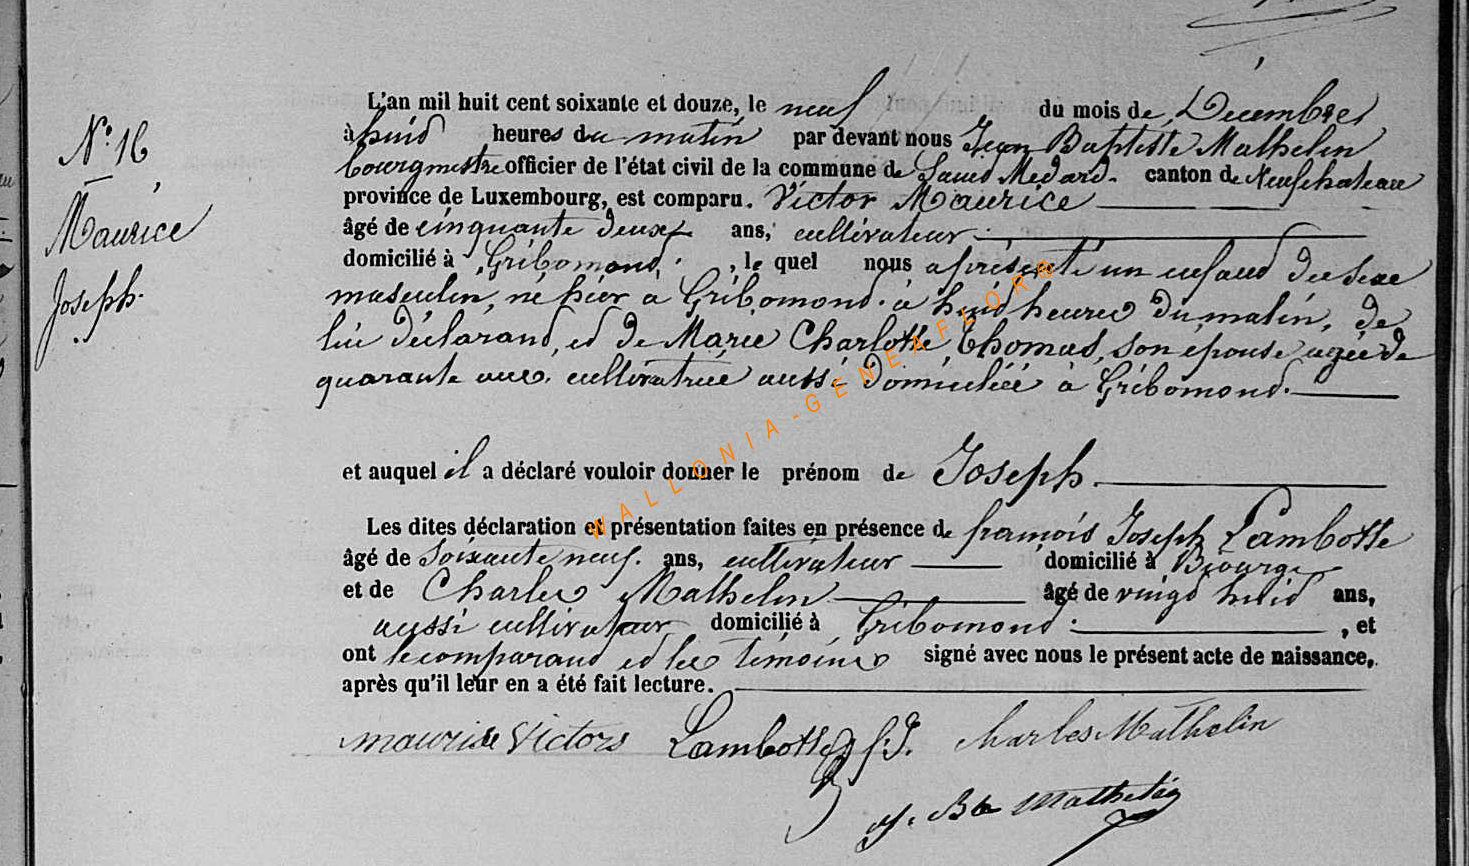 N° 16
Maurice
Joseph.
L'an mil huit cent soixante et douze, le neuf du mois de Décembre,
à huid heures du matin par devant nous Jean Baptiste Mathelin
bourgmestre officier de l'état civil de la commune de Saint Médard. canton de Neufchateau
province de Luxembourg, est comparu. Victor Maurice
âgé de cinquante deux ans, cultivateur
domicilié à Gribomond, , le quel nous a présenté un enfand du sexe
masculin, né hier à Gribomond. à huid heures du matin, de
lui déclarand, ed de Marie Charlotte Thomas, son épouse, agée de
quarante ans. cultivatrice aussi domiciliée à Gribomond.
et auquel il a déclaré vouloir donner le prénom de Joseph.
Les dites déclaration et présentation faites en présence de françois Joseph Lambotte
âgé de soixante neuf. ans, cultivateur domicilié à Biourge
et de Charles Mathelin âgé de vingd huid ans,
aussi cultivateur domicilié à Gribomond. , et
ont le comparand ed les témoins signé avec nous le présent acte de naissance,
après qu'il leur en a été fait lecture.
maurice Victors Lambotte f. J. Charles Mathelin
J. Bte Mathelin
WALLONIA-GENEAFLORO